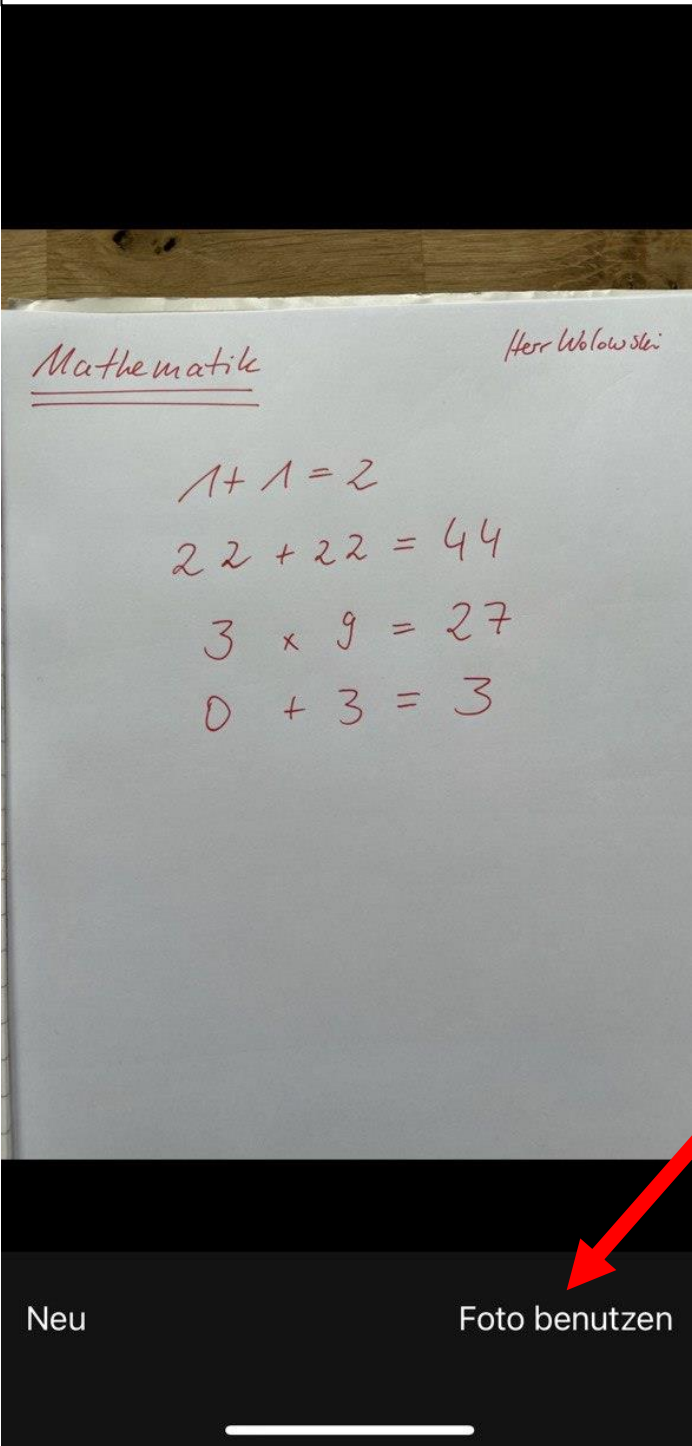 Mathematik
Herr Wolowski
1 + 1 = 2
22 + 22 = 44
3 x 9 = 27
0 + 3 = 3
Neu
Foto benutzen